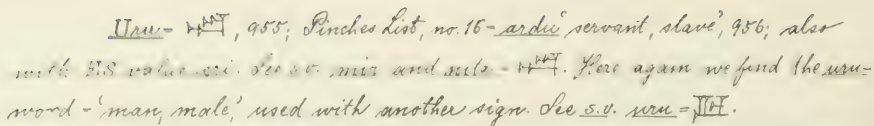 Uru - , 955; Pinches List, no. 16 - ardu 'servant, slave', 956; also
with ES value eri. See s.v. mir and . Here again we find the uru-
word - 'man, male,' used with another sign. See s.v. uru = .